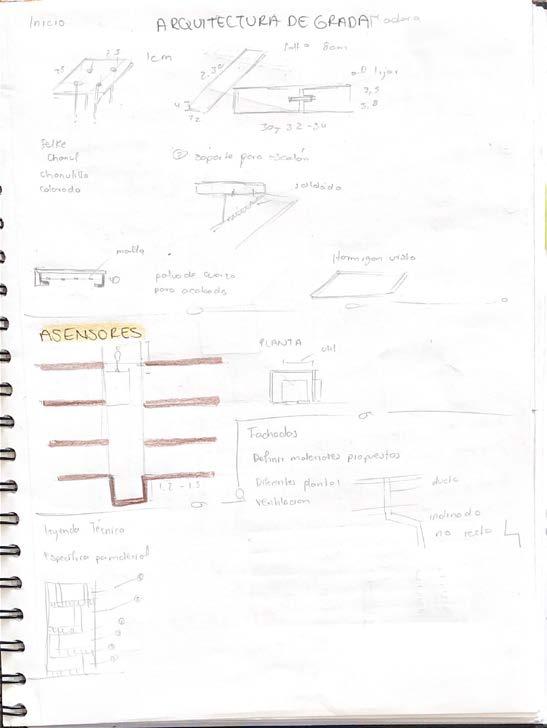 Inicio
ARQUITECTURA DE GRADA
Madera
2.5
1cm
25
2.30
8cm
lijar
3,5
3,8
4
12
30 y 32 - 34
Chanul
Chanulillo
Colorado
② soporte para escalón
soldado
malla
polvo de cuarzo
para acabados
Hormigon visto
ASENSORES
PLANTA
util
1.2 - 1.5
Fachadas
Definir materiales propuestos
Diferentes plantas
ventilacion
ducto
inclinado
no recto
Leyenda Técnica